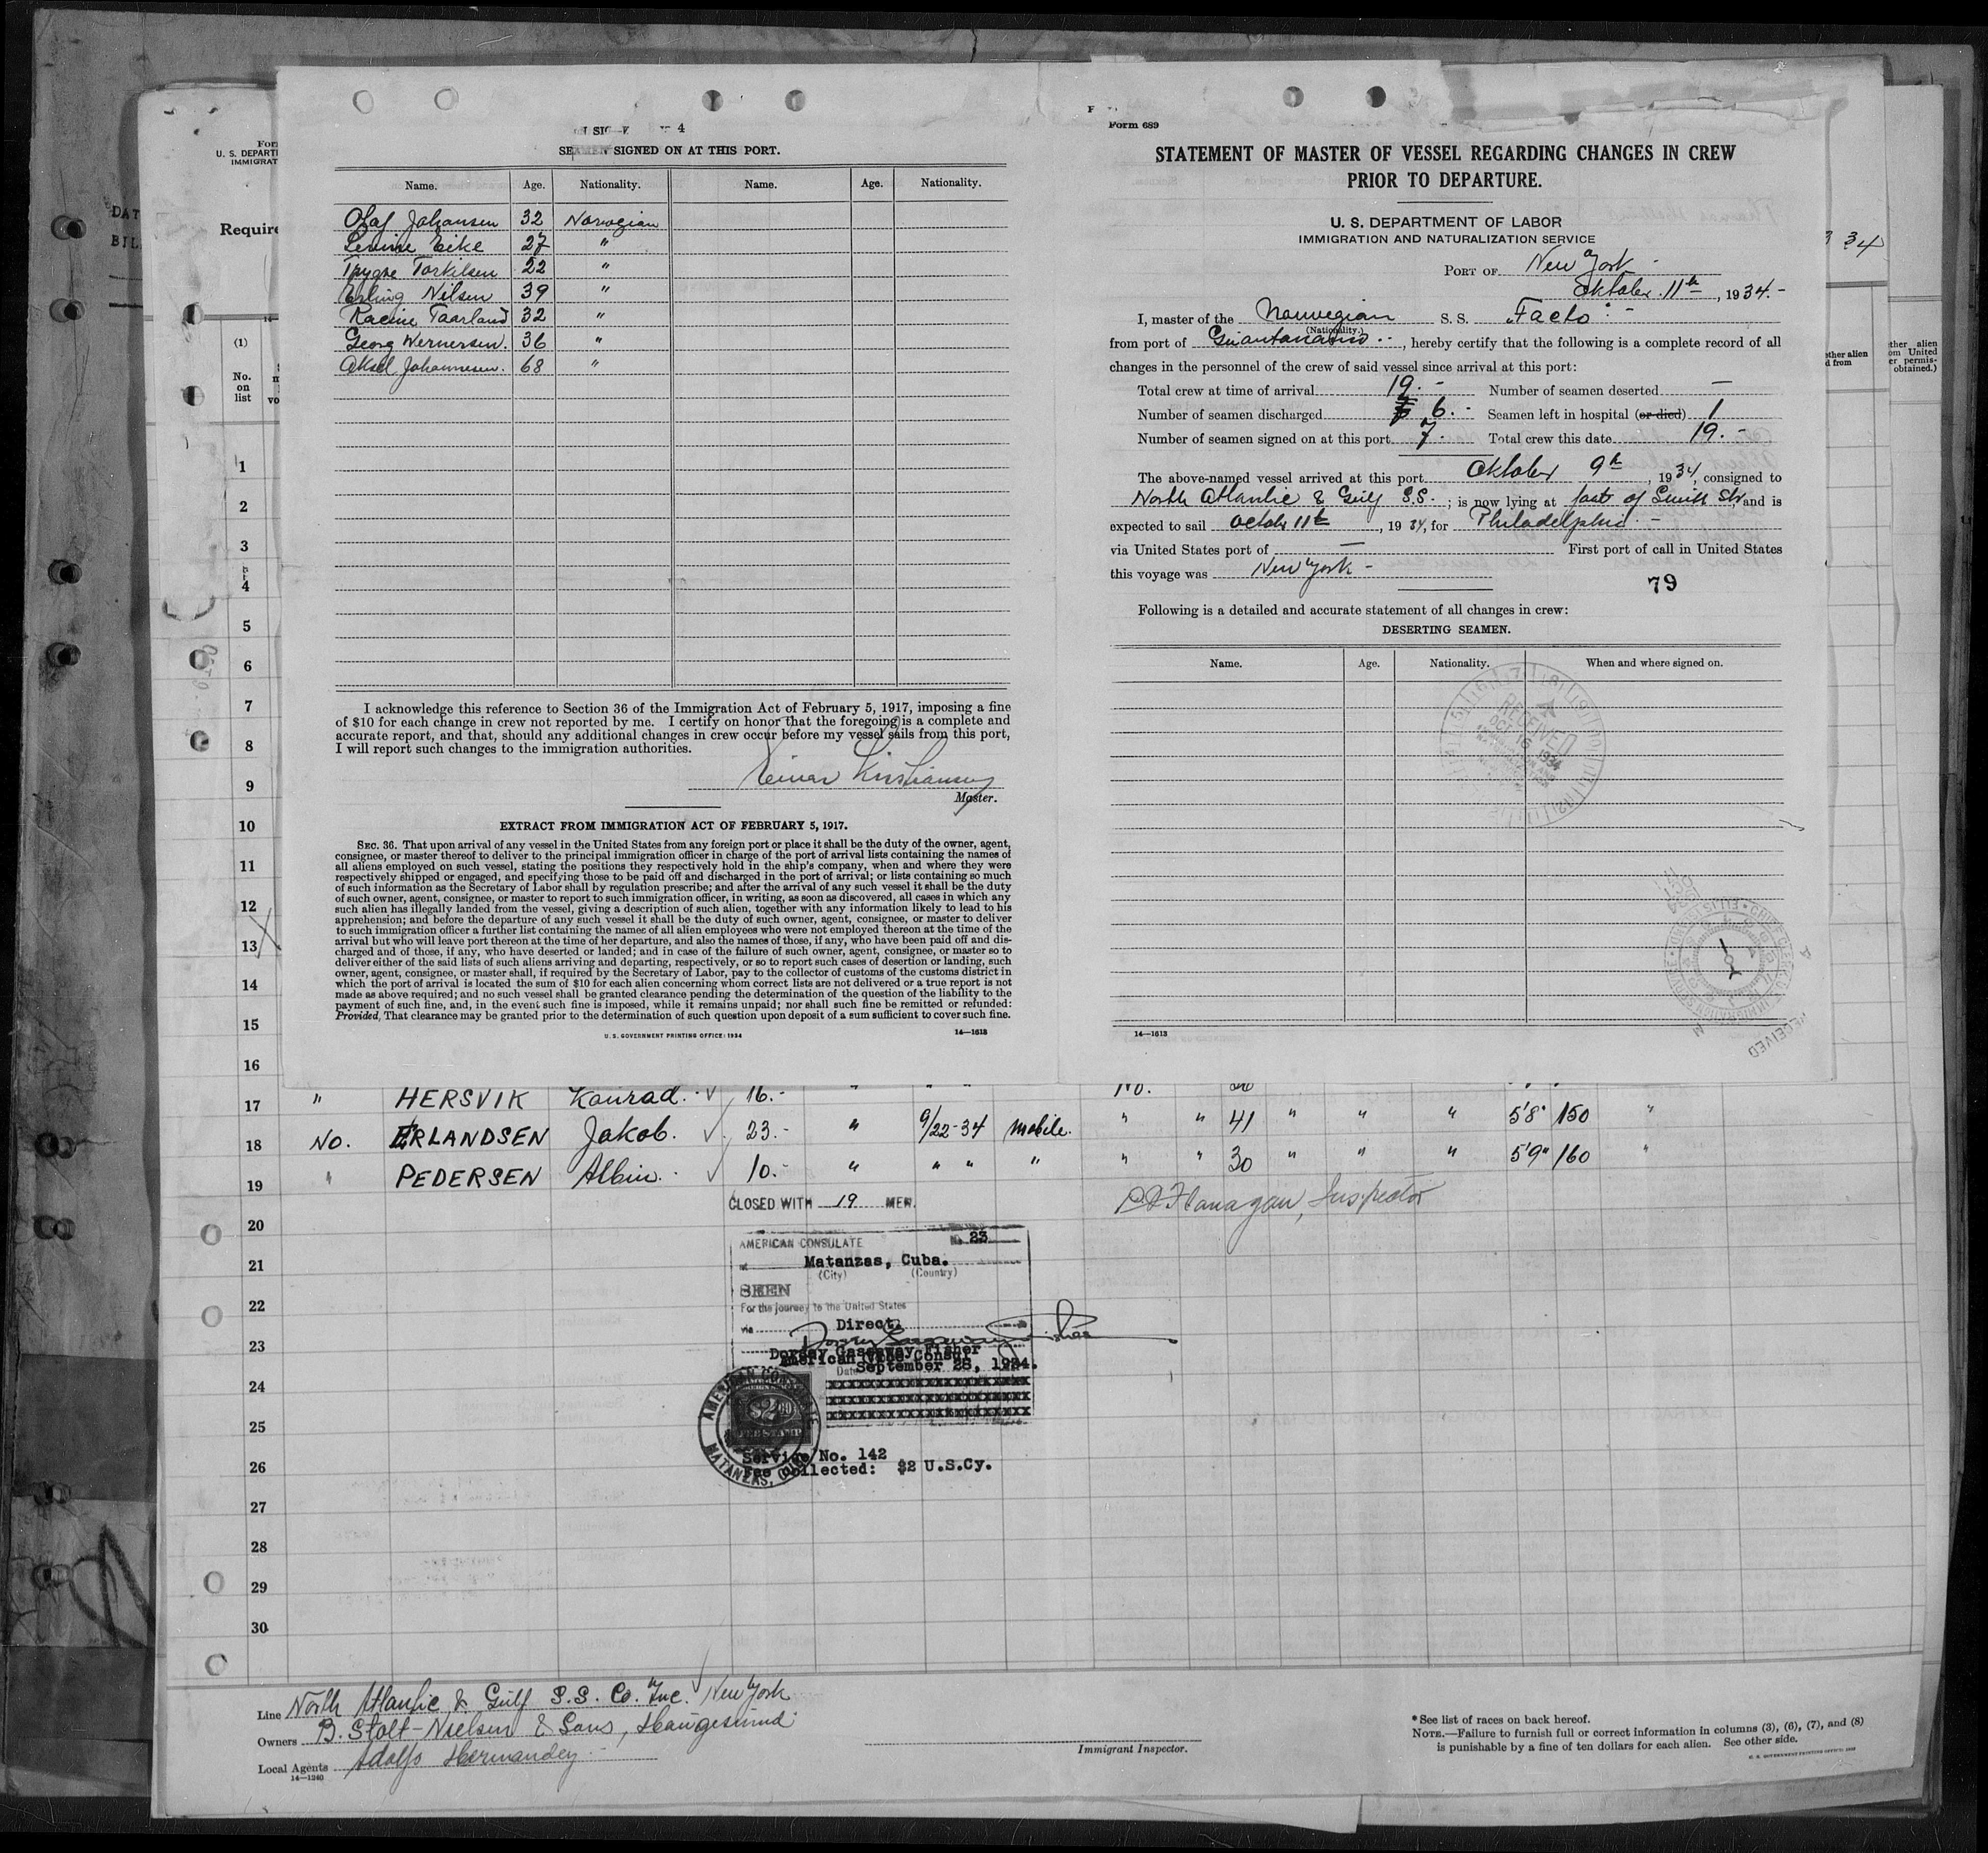 SEAMEN SIGNED ON AT THIS PORT.
Name. Age. Nationality. Name. Age. Nationality.
Olaf Johansen 32 Norwegian
Eike 27 "
Trygve Torkilsen 22 "
Erling Nilsen 39 "
Taarland 32 "
Georg Wernersen. 36 "
Aksel Johannesen. 68 "
I acknowledge this reference to Section 36 of the Immigration Act of February 5, 1917, imposing a fine
of $10 for each change in crew not reported by me. I certify on honor that the foregoing is a complete and
accurate report, and that, should any additional changes in crew occur before my vessel sails from this port,
I will report such changes to the immigration authorities.
Einar Kristiansen
Master.
EXTRACT FROM IMMIGRATION ACT OF FEBRUARY 5, 1917.
SEC. 36. That upon arrival of any vessel in the United States from any foreign port or place it shall be the duty of the owner, agent,
consignee, or master thereof to deliver to the principal immigration officer in charge of the port of arrival lists containing the names of
all aliens employed on such vessel, stating the positions they respectively hold in the ship's company, when and where they were
respectively shipped or engaged, and specifying those to be paid off and discharged in the port of arrival; or lists containing so much
of such information as the Secretary of Labor shall by regulation prescribe; and after the arrival of any such vessel it shall be the duty
of such owner, agent, consignee, or master to report to such immigration officer, in writing, as soon as discovered, all cases in which any
such alien has illegally landed from the vessel, giving a description of such alien, together with any information likely to lead to his
apprehension; and before the departure of any such vessel it shall be the duty of such owner, agent, consignee, or master to deliver
to such immigration officer a further list containing the names of all alien employees who were not employed thereon at the time of the
arrival but who will leave port thereon at the time of her departure, and also the names of those, if any, who have been paid off and dis-
charged and of those, if any, who have deserted or landed; and in case of the failure of such owner, agent, consignee, or master so to
deliver either of the said lists of such aliens arriving and departing, respectively, or so to report such cases of desertion or landing, such
owner, agent, consignee, or master shall, if required by the Secretary of Labor, pay to the collector of customs of the customs district in
which the port of arrival is located the sum of $10 for each alien concerning whom correct lists are not delivered or a true report is not
made as above required; and no such vessel shall be granted clearance pending the determination of the question of the liability to the
payment of such fine, and, in the event such fine is imposed, while it remains unpaid; nor shall such fine be remitted or refunded:
Provided, That clearance may be granted prior to the determination of such question upon deposit of a sum sufficient to cover such fine.
U. S. GOVERNMENT PRINTING OFFICE: 1934 14—1613
Form 689
STATEMENT OF MASTER OF VESSEL REGARDING CHANGES IN CREW
PRIOR TO DEPARTURE.
U. S. DEPARTMENT OF LABOR
IMMIGRATION AND NATURALIZATION SERVICE
PORT OF New York
Oktober 11th, 1934.-
I, master of the Norwegian S. S. Facto
(Nationality.)
from port of , hereby certify that the following is a complete record of all
changes in the personnel of the crew of said vessel since arrival at this port:
Total crew at time of arrival 19.- Number of seamen deserted —
Number of seamen discharged 6.- Seamen left in hospital (or died) 1
Number of seamen signed on at this port 7.- Total crew this date 19.-
The above-named vessel arrived at this port Oktober 9th, 1934, consigned to
North Atlantic & Gulf S.S. ; is now lying at foot of Smith Str, and is
expected to sail 11th, 1934, for Philadelphia.-
via United States port of — First port of call in United States
this voyage was New York -
79
Following is a detailed and accurate statement of all changes in crew:
DESERTING SEAMEN.
Name. Age. Nationality. When and where signed on.
RECEIVED
OCT 16 1934
RECEIVED
14—1613
U. S. DEPARTM
IMMIGRAT
Require
(1)
No.
on
list
1
2
3
4
5
6
7
8
9
10
11
12
13
14
15
16
17 " HERSVIK Konrad. 16.-
18 No. ERLANDSEN Jakob. 23.- " 9/22-34 Mobile. " " 41 " " " 5'8" 150 "
19 " PEDERSEN Albin. 10.- " " " " " " 30 " " " 5'9" 160 "
CLOSED WITH 19 MEN.
Flanagan, Inspector
20
21
22
23
24
25
26
27
28
29
30
AMERICAN CONSULATE No. 23
at Matanzas, Cuba.
(City) (Country)
SEEN
For the journey to the United States
via Direct.
Dorsay Gassaway Fisher
American Vice Consul
Date September 28, 1934.
AMERICAN CONSULATE
MATANZAS, CUBA
Service No. 142
Fee Collected: $2 U.S.Cy.
Line North Atlantic & Gulf S.S. Co. Inc. New York
Owners B. Stolt-Nielsen & Sons, Haugesund
Local Agents Adolfo Hernandez
14—1240
Immigrant Inspector.
* See list of races on back hereof.
NOTE.—Failure to furnish full or correct information in columns (3), (6), (7), and (8)
is punishable by a fine of ten dollars for each alien. See other side.